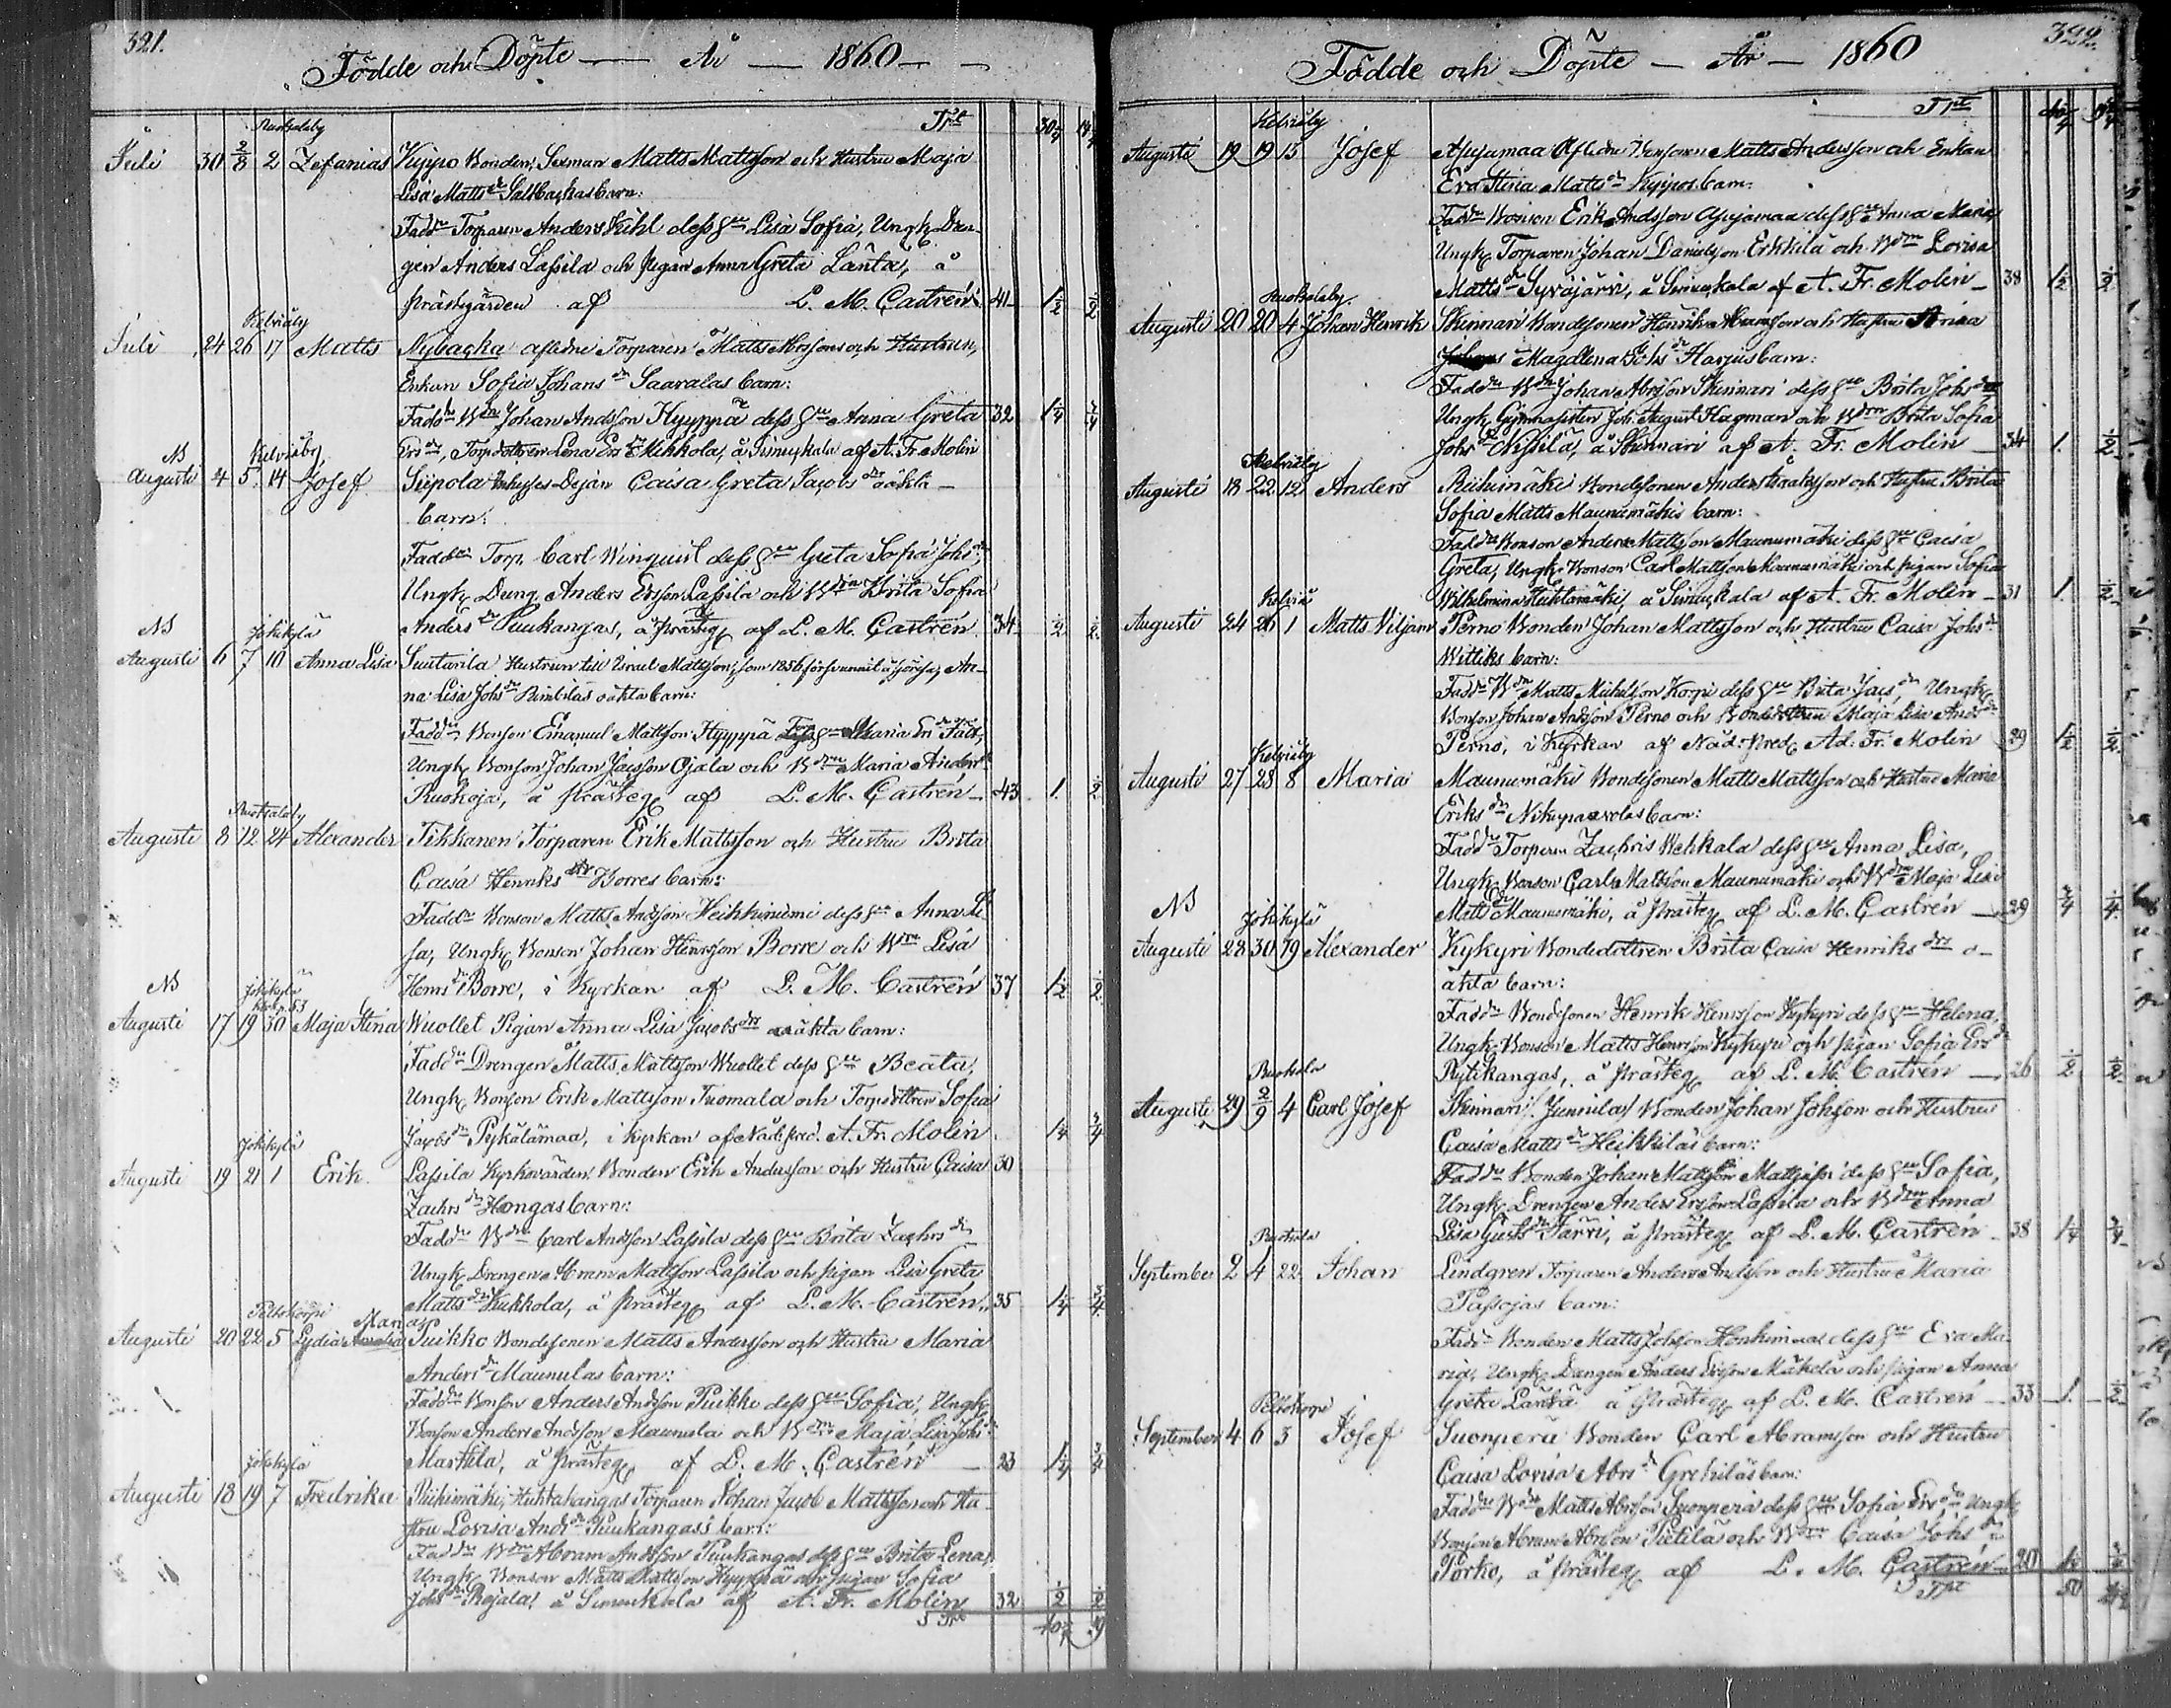 321.
Födde och Döpte — År — 1860
Trpt 30 3/4 14 3/4
Ruotsaloby
Juli 30 2/8 2 Zefanias Kyppo Bonden, Sexman Matts Mattsson och Hustru Maja
Lisa Matts dr Saltbackas barn:
Fadd dr Torparen Anders Kihl dess h:u Lisa Sofia, Ungk. Drän-
gen Anders Lassila och pigan Anna Greta Länta, å
prästgården af L. M. Castrén 41 1 1/2 1/2
Kelviåby
Juli 24 26 17 Matts Nybacka aflidne Torparen Matts Abrssons och Hustrun,
Enkan Sofia Johans dr Saaralas barn:
Fadd dr B dn Johan Andsson Hyyppä dess h:u Anna Greta 32 1 1/4 3/4
Ers dr, Torpdottren Lena Ers dr Mehkola, å Simuskala af A. Fr. Molin
NB Kelviåby
Augusti 4 5 14 Josef Siipola Inhyses Dejan Caisa Greta Jacobs dr oäkta
barn:
Fadd dr Torp. Carl Winquist dess h:u Greta Sofia Johs dr,
Ungk. Dräng. Anders Ersson Lassila och B dtrn Brita Sofia
Anders dr Puukangas, å prästeg. af L. M. Castrén 34 1/2 1/2
NB Jokikylä
Augusti 6 7 10 Anna Lisa Suntarila Hustrun till Mattsson, som 1856 försvunnit å sjöresa, An-
na Lisa Johs dr Rimbiläs oäkta barn:
Fadd dr Bonson Emanuel Mattsson Hyyppä Maria Er dr Fält,
Ungk. Bonson Johan Jacsson Ojala och B dtrn Maria Anders dr
Ruokoja, å prästeg. af L. M. Castrén 43 1. 1/2
Ruotsaloby
Augusti 8 12 24 Alexander Tikkanen Torparen Erik Mattsson och Hustru Brita
Caisa Henriks dr Borres barn:
Fadd dr Bonson Matts Andsson Heikkiniemi dess h:u Anna Li-
sa, Ungk. Bonson Johan Henrsson Borre och B dtrn Lisa
Henrs dr Borre, i Kyrkan af L. M. Castrén 37 1 1/2 1/2
NB Jokikylä
Augusti 17 19 30 Maja Stina Wuollet Pigan Anna Lisa Jacobs dr oäkta barn:
Fadd dr Drengen Matts Mattsson Wuollet dess h:u Beata,
Ungk. Bonson Erik Mattsson Tuomala och Torpdottren Sofia
Jacobs dr Pykälämaa, i Kyrkan af Nåd. pred. A. Fr. Molin 1/4 3/4
Jokikylä
Augusti 19 21 1 Erik Lassila Kyrkovärden, Bonden Erik Andersson och Hustru Caisa 30
Zachrs dr Hongas barn:
Fadd dr B dn Carl Andsson Lassila dess h:u Brita Zachrs dr
Ungk. Drengen Abram Mattsson Lassila och pigan Lisa Greta
Matts dr Kukkola, å prästeg. af L. M. Castrén 35 1 1/4 3/4
Peltokorpi Maria
Augusti 20 22 5 Lydia Amalia Puikko Bondesonen Matts Andersson och Hustru Maria
Anders dr Maunulas barn:
Fadd dr Bonson Anders Andsson Puikko dess h:u Sofia, Ungk.
Bonson Anders Andsson Maunula och B dtrn Maja Lisa Johs dr
Marttila, å prästeg. af L. M. Castrén 23 1 1/4 3/4
Jokikylä
Augusti 18 19 7 Fredrika Riihimäki, Huhtakangas Torparen Johan Jacob Mattsson och Hu-
stru Lovisa Ands dr Puukangas's barn:
Fadd dr B dn Abram Andsson Puukangas dess h:u Brita Lena,
Ungk. Bonson Matts Mattsson Hyyppä och pigan Sofia
Johs dr Rojala, å Simuskala af A. Fr. Molin 32 1/2 1/2
S Trpt
322.
Födde och Döpte — År — 1860
Trpt
Kelviåby
Augusti 19 19 15 Josef Apujamaa Aflidne Bonsonen Matts Andersson och Enkan
Eva Stina Matts dr Kyppos barn:
Fadd dr Bonson Erik Andsson Apujamaa dess h:u Anna Maria,
Ungk. Torparen Johan Danielsson Erkkilä och B dtrn Lovisa
Matts dr Syväjärvi, å Simuskala af A. Fr. Molin 38 1 1/2 1/2
Ruotsaloby
Augusti 20 20 4 Johan Henrik Skinnari Bondesonen Henrik Abramsson och Hustru Brita
Magdlena Johs dr Harjus barn:
Fadd dr B dn Johan Abrsson Skinnari dess h:u Brita Johs dr
Ungk. Gymnasisten Joh. August Hagman och B dtrn Brita Sofia
Johs dr Nissilä, å Skinnari af A. Fr. Molin 34 1. 1/2
Kelviåby
Augusti 18 22 12 Anders Riihimäki Bondesonen Anders Isaksson och Hustru Brita
Sofia Matts Maunumäkis barn:
Fadd dr Bonson Anders Mattsson Maunumäki dess h:u Caisa
Greta, Ungk. Bonson Carl Mattsson Maunumäki och pigan Sofia
Wilhelmina Huhtamäki, å Simuskala af A. Fr. Molin 31 1. 1/2
Kelviå
Augusti 24 26 1 Matts Viljam Perno Bonden Johan Mattsson och Hustru Caisa Johs dr
Wittiks barn:
Fadd dr B dn Matts Michelsson Korpi dess h:u Brita Jacs dr, Ungk.
Bonson Johan Andsson Perno och Bondedottren Maja Lisa Ands dr
Perno, i Kyrkan af Nåd. Pred. Ad. Fr. Molin 29 1 1/2 1/2
Kelviåby
Augusti 27 28 8 Maria Maunumäki Bondesonen Matts Mattsson och Hustru Maria
Eriks dr Nikupaavolas barn:
Fadd dr Torparen Zachris Wehkala dess h:u Anna Lisa,
Ungk. Bonson Carl Mattsson Maunumäki och B dtrn Maja Lisa
Matts dr Maunumäki, å prästeg. af L. M. Castrén 29 3/4 1/4
NB Jokikylä
Augusti 28 30 19 Alexander Kykyri Bondedottren Brita Caisa Henriks dr o-
äkta barn:
Fadd dr Bondesonen Henrik Henrsson Kykyri dess h:u Helena,
Ungk. Bonson Matts Henrsson Kykyri och pigan Sofia Ers dr
Rytikangas, å prästeg. af L. M. Castrén 26 1/2 1/2
Ruotsalo
Augusti 29 2/9 4 Carl Josef Skinnari, Junnila, Bonden Johan Johsson och Hustru
Caisa Matts dr Heikkiläs barn:
Fadd dr Bonden Johan Mattsson Mattjussi dess h:u Sofia,
Ungk. Drengen Anders Ersson Lassila och B dtrn Anna
Lisa Gusts dr Färri, å prästeg. af L. M. Castrén 38 1 1/4 3/4
Ruotsalo
September 2 4 22 Johan Lindgren Torparen Anders Andsson och Hustru Maria
Passojas barn:
Fadd dr Bonden Matts Johsson Honkimaa dess h:u Eva Ma-
ria, Ungk. Drengen Anders Ersson Mäkelä och pigan Anna
Greta Länta å prästeg. af L. M. Castrén 33 1. 1/2
Peltokorpi
September 4 6 3 Josef Suonperä Bonden Carl Abramsson och Hustru
Caisa Lovisa Abrs dr Grekiläs barn:
Fadd dr B dn Matts Abrsson Suonperä dess h:u Sofia Ers dr, Ungk.
Bonson Abram Abrsson Pietilä och B dtrn Caisa Johs dr
Porko, å prästeg. af L. M. Castrén 20
S Trpt 50